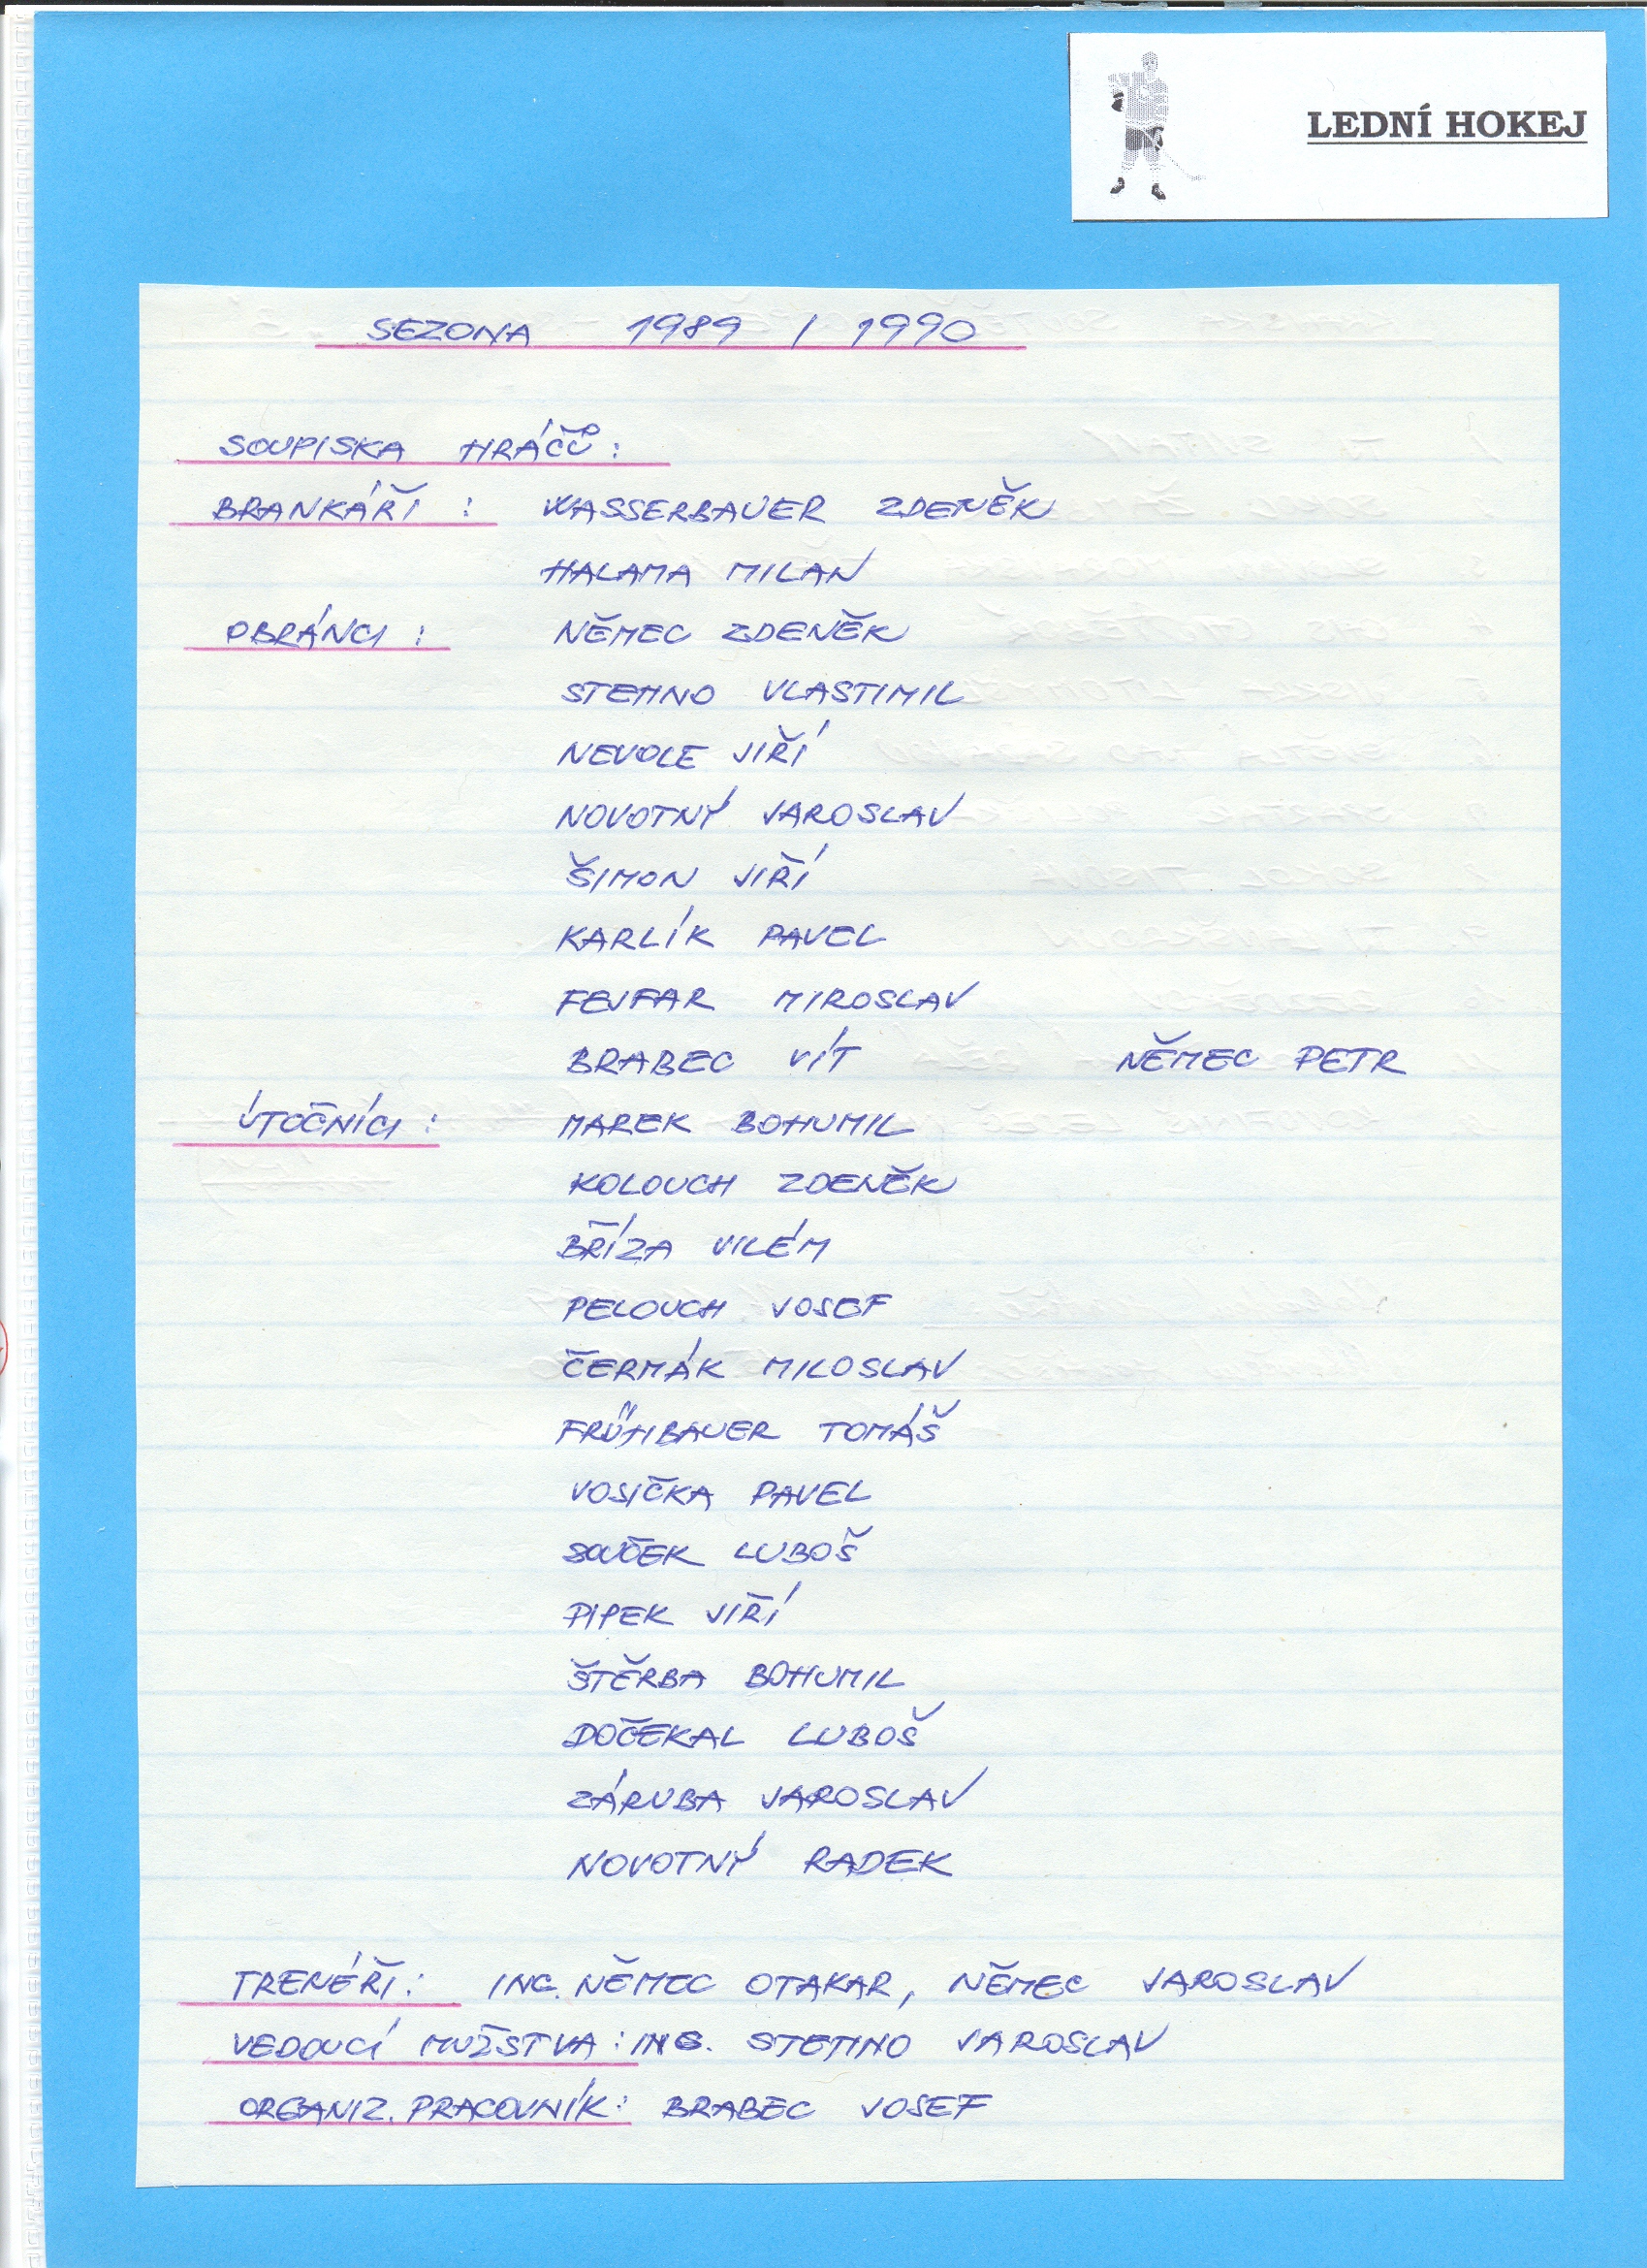 LEDNÍ HOKEJ
SEZONA 1989 / 1990
SOUPISKA HRÁČŮ:
BRANKÁŘI: WASSERBAUER ZDENĚK
HALAMA MILAN
OBRÁNCI: NĚMEC ZDENĚK
STEHNO VLASTIMIL
NEVOLE JIŘÍ
NOVOTNÝ JAROSLAV
ŠIMON JIŘÍ
KARLÍK PAVEL
FEJFAR MIROSLAV
BRABEC VÍT NĚMEC PETR
ÚTOČNÍCI: MAREK BOHUMIL
KOLOUCH ZDENĚK
BŘÍZA VILÉM
PELOUCH JOSEF
ČERMÁK MILOSLAV
FRÜHBAUER TOMÁŠ
VOSIČKA PAVEL
SOUČEK LUBOŠ
PIPEK JIŘÍ
ŠTĚRBA BOHUMIL
DOČEKAL LUBOŠ
ZÁRUBA JAROSLAV
NOVOTNÝ RADEK
TRENÉŘI: ING. NĚMEC OTAKAR, NĚMEC JAROSLAV
VEDOUCÍ MUŽSTVA: ING. STEHNO JAROSLAV
ORGANIZ. PRACOVNÍK: BRABEC JOSEF